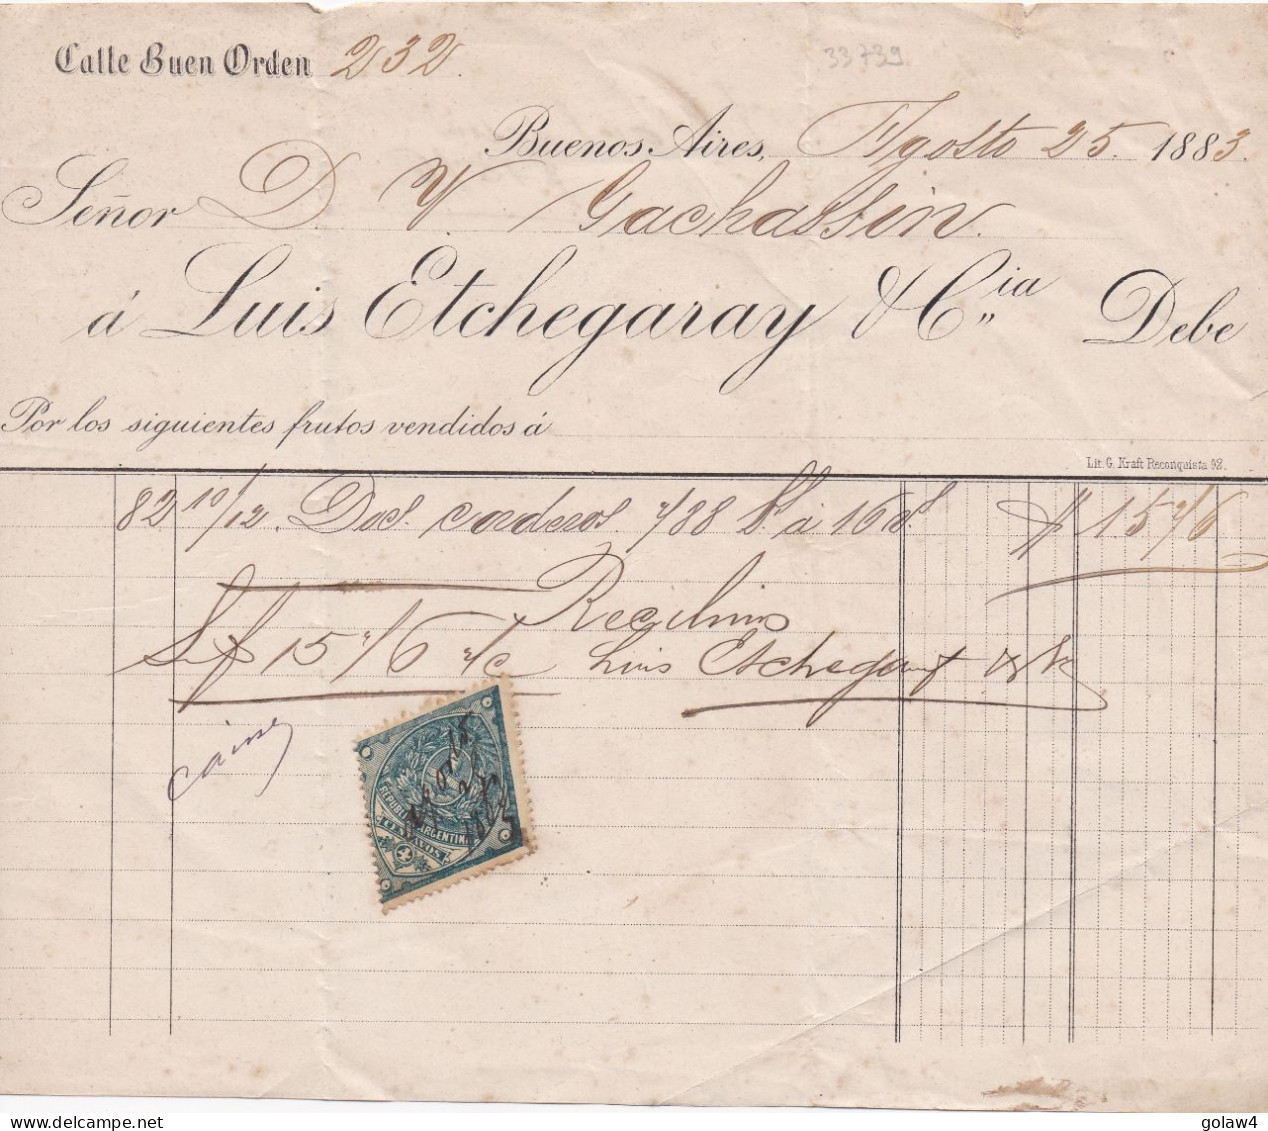 Calle Buen Orden 232.
33739
Buenos Aires, Agosto 25. 1883.
Señor D. V. Gachassin.
á Luis Etchegaray & Cia Debe
Por los siguientes frutos vendidos á
Lit. G. Kraft Reconquista 92.
82 10/12. Doc. corderos 788 à 16
Recibimos
Luis Etchegaray
REPUBLICA ARGENTINA
4 CENTAVOS 4